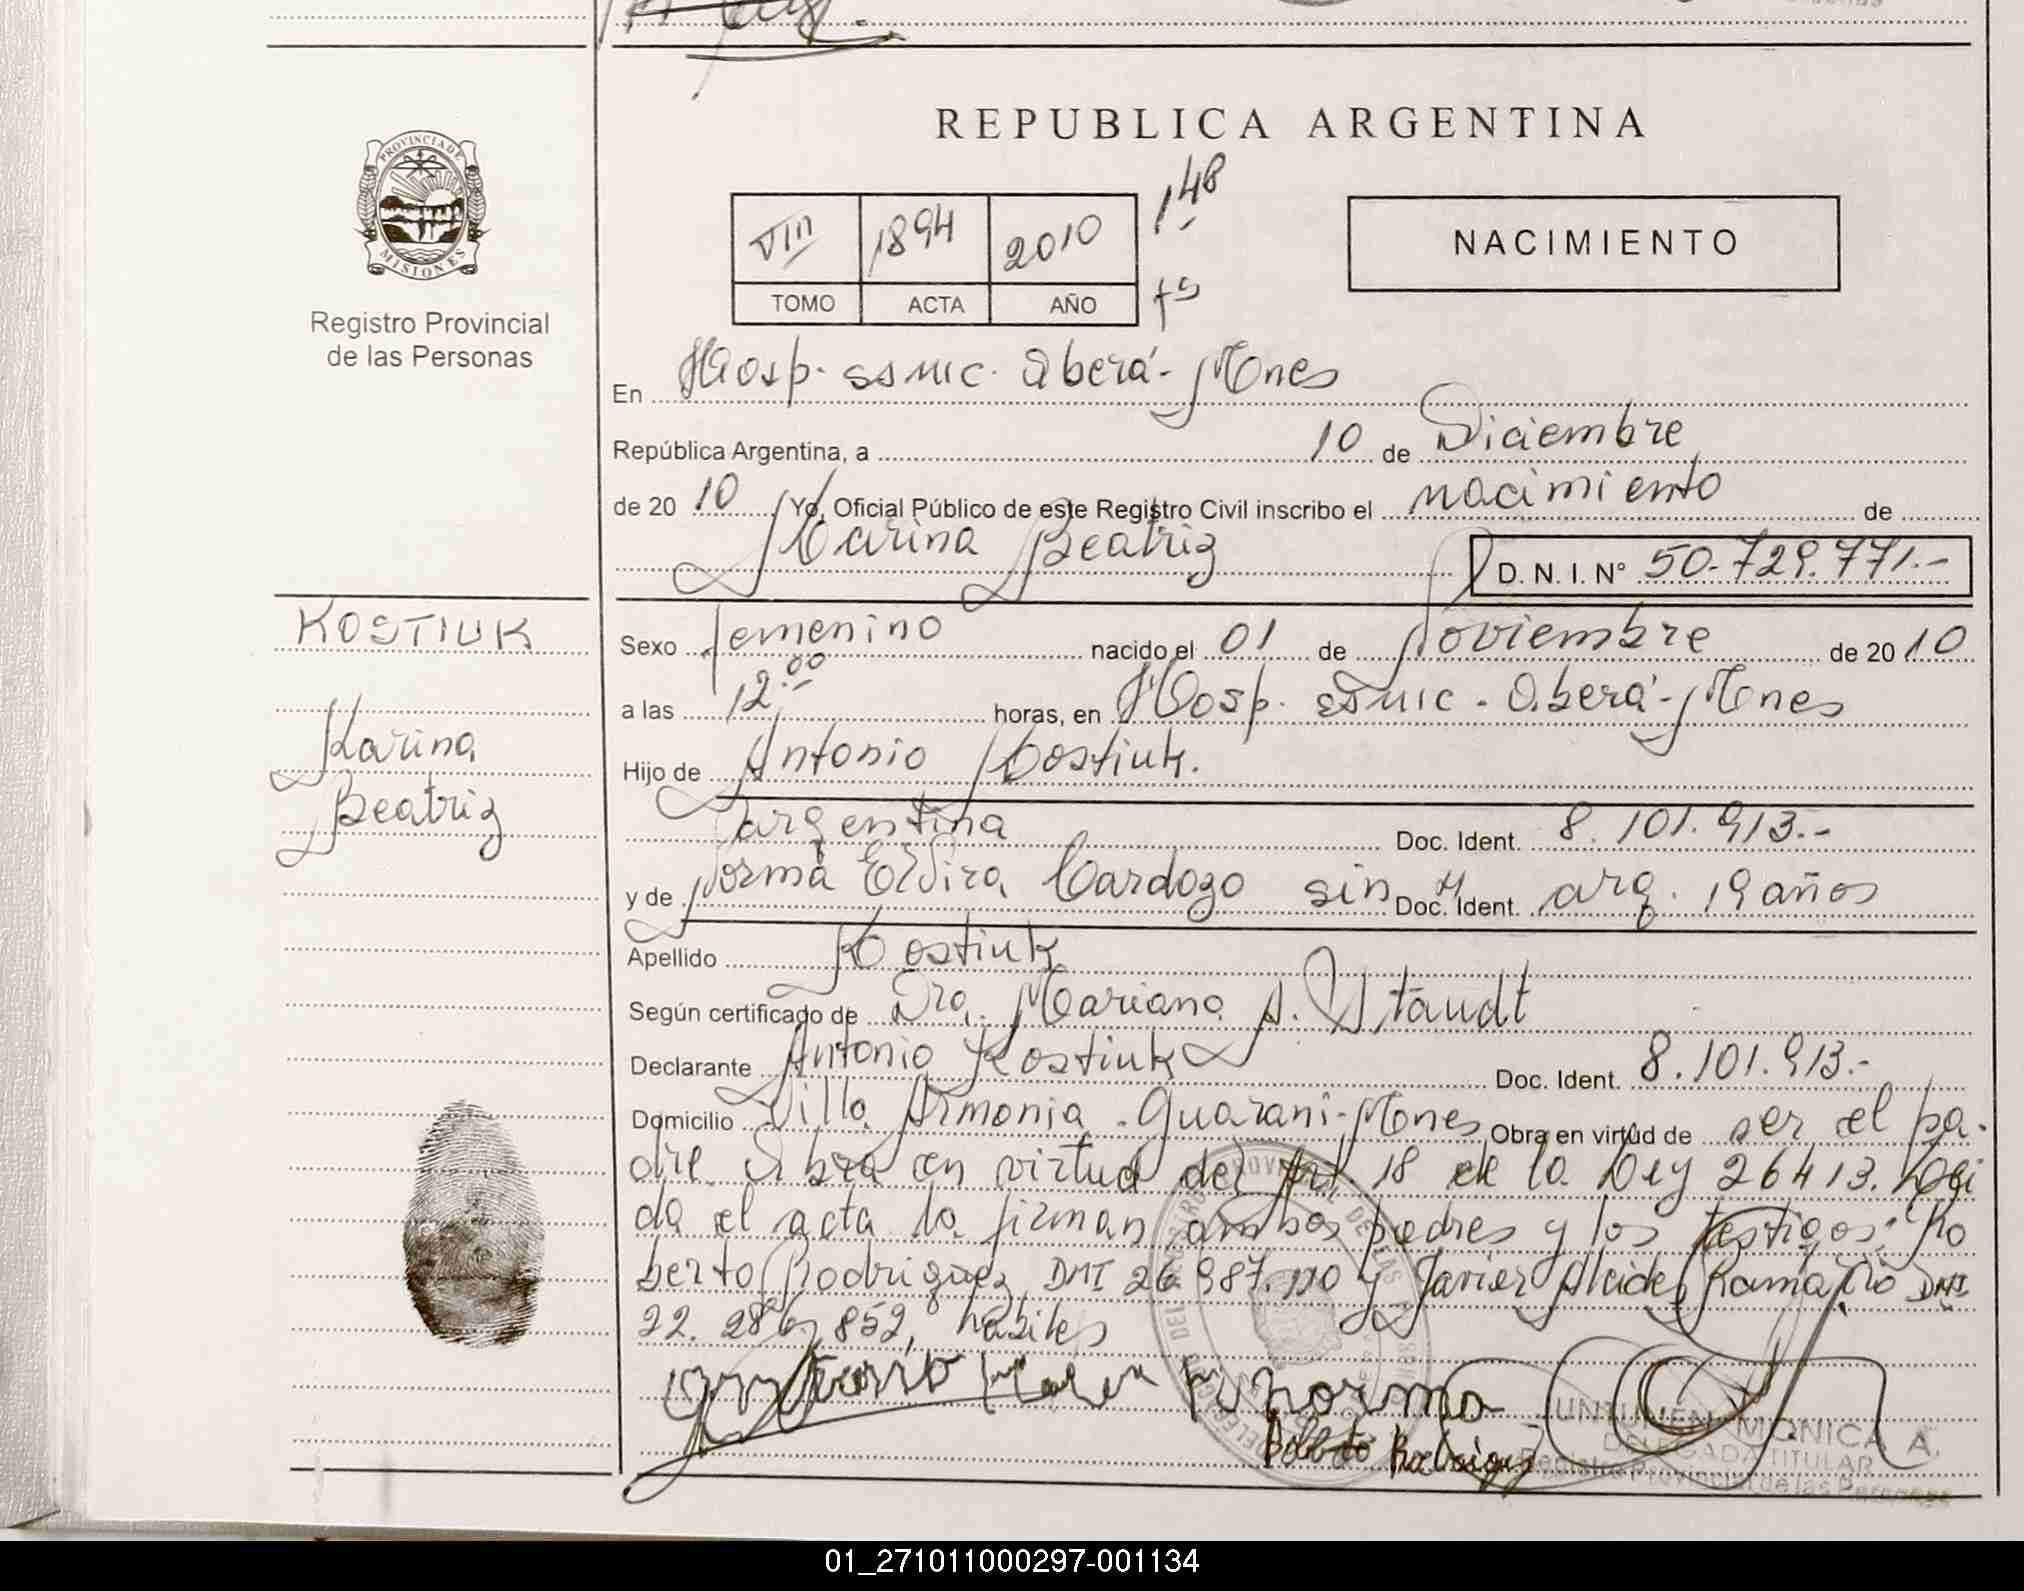 REPUBLICA ARGENTINA
PROVINCIA DE
MISIONES
Registro Provincial
de las Personas
VIII 1894 2010
TOMO ACTA AÑO
148
fs
NACIMIENTO
En Hosp. SSMIC. Oberá - Mnes
República Argentina, a 10 de Diciembre
de 20 10 Yo, Oficial Público de este Registro Civil inscribo el nacimiento de
Karina Beatriz D. N. I. N° 50.729.771.-
KOSTIUK
Karina
Beatriz
Sexo femenino nacido el 01 de Noviembre de 20 10
a las 12.00 horas, en Hosp. SSMIC - Oberá - Mnes
Hijo de Antonio Kostiuk.
argentina Doc. Ident. 8.101.913.-
y de Norma Elvira Cardozo sin Doc. Ident. arg. 19 años
Apellido Kostiuk
Según certificado de Dra. Mariana A. Staudt
Declarante Antonio Kostiuk Doc. Ident. 8.101.913.-
Domicilio Villa Armonia - Guarani - Mnes Obra en virtud de ser el pa-
dre. Obra en virtud del Art. 18 de la Ley 26413. Leí
da el acta la firman ambos padres y los testigos: Ro
berto Rodriguez DNI 26.987.110 y Javier Alcides Ramirio DNI
22.286.852, hábiles
Norma
Roberto Rodriguez
JUNTUNEN MONICA A.
DELEGADA TITULAR
Registro Provincial de las Personas
01_271011000297-001134